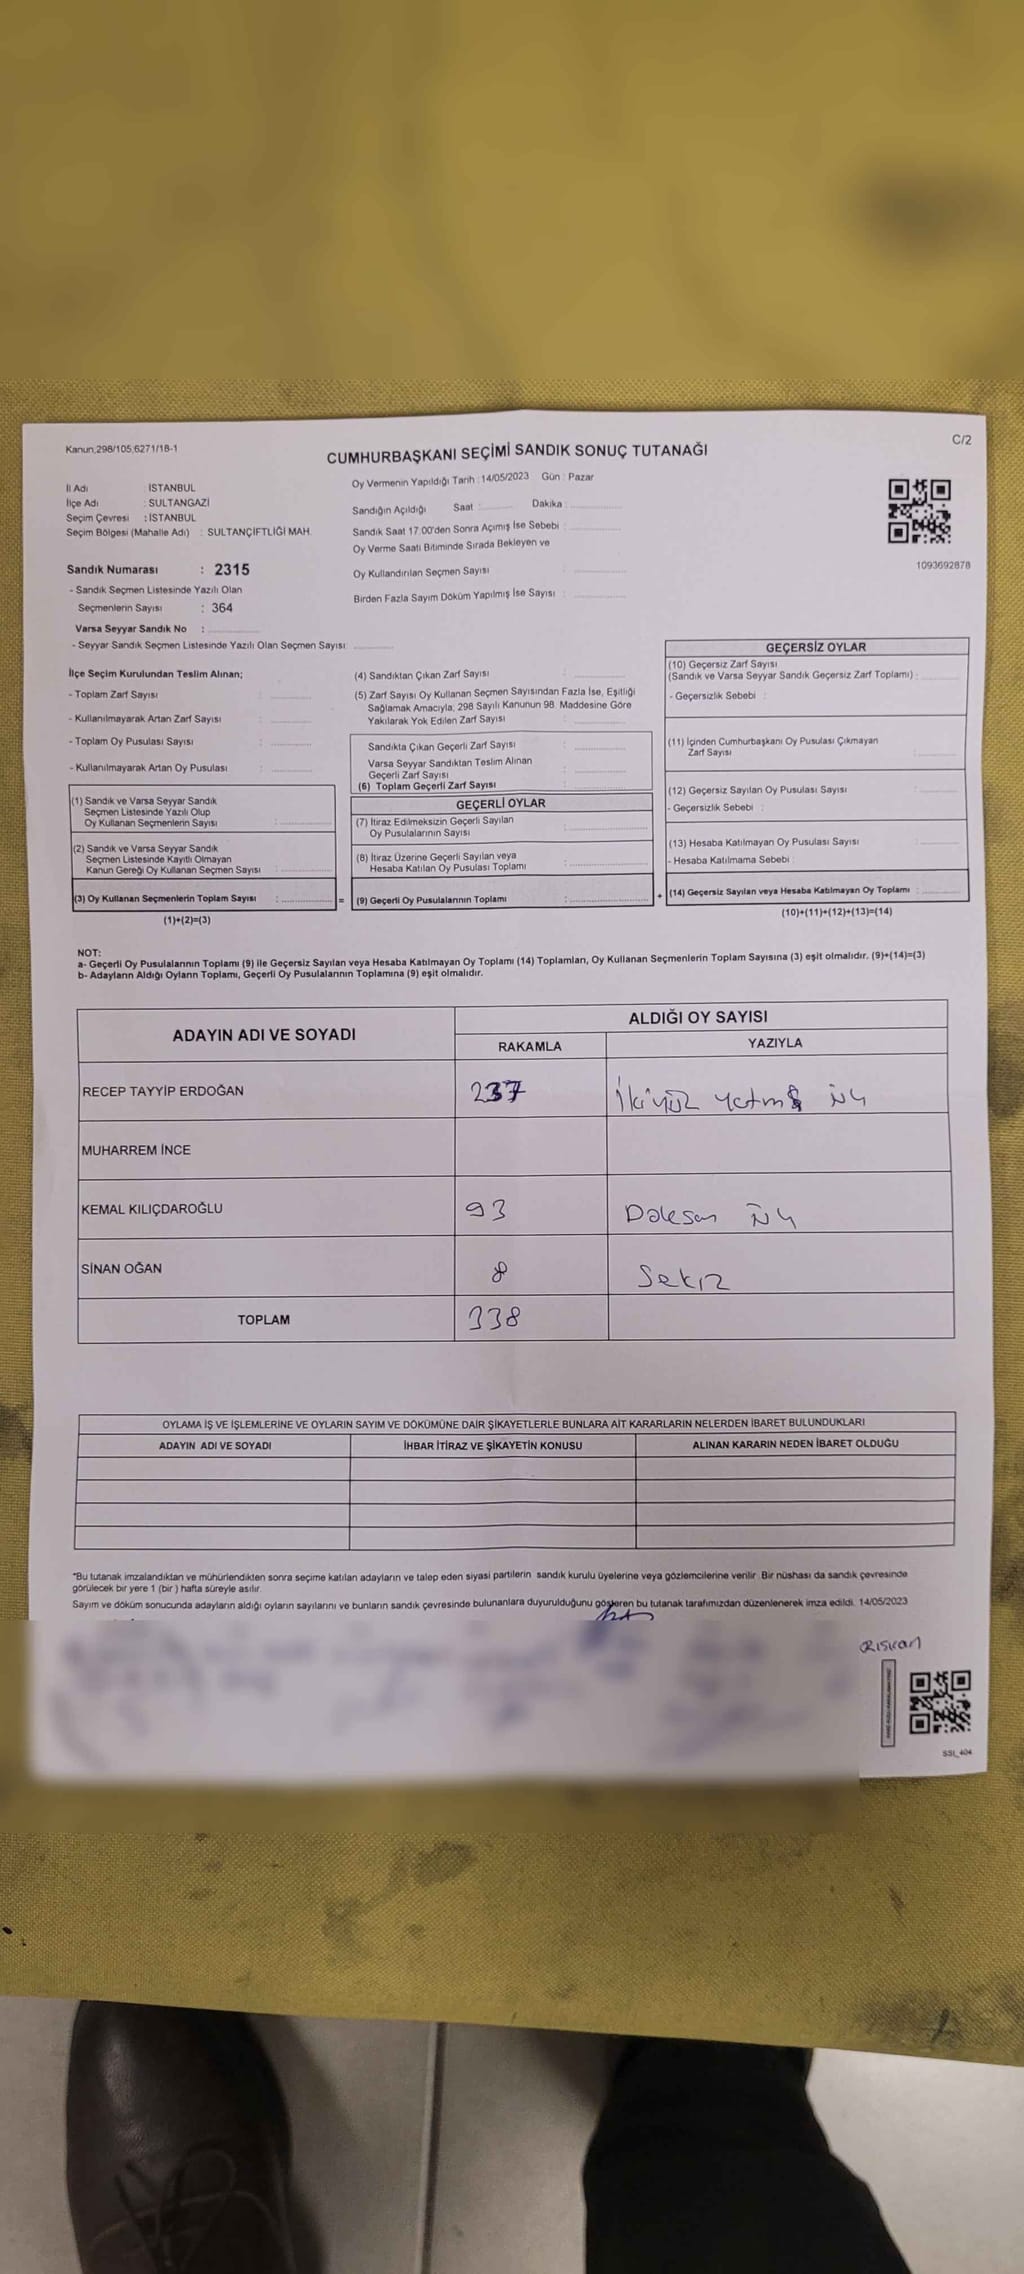 Kanun;298/105,6271/18-1
C/2
CUMHURBAŞKANI SEÇİMİ SANDIK SONUÇ TUTANAĞI
İl Adı : İSTANBUL
İlçe Adı : SULTANGAZİ
Seçim Çevresi : İSTANBUL
Seçim Bölgesi (Mahalle Adı) : SULTANÇİFTLİĞİ MAH.
Sandık Numarası : 2315
- Sandık Seçmen Listesinde Yazılı Olan
Seçmenlerin Sayısı : 364
Varsa Seyyar Sandık No :
- Seyyar Sandık Seçmen Listesinde Yazılı Olan Seçmen Sayısı:
Oy Vermenin Yapıldığı Tarih : 14/05/2023 Gün : Pazar
Sandığın Açıldığı Saat : Dakika :
Sandık Saat 17.00'den Sonra Açımış İse Sebebi :
Oy Verme Saati Bitiminde Sırada Bekleyen ve
Oy Kullandırılan Seçmen Sayısı :
Birden Fazla Sayım Döküm Yapılmış İse Sayısı :
1093692878
İlçe Seçim Kurulundan Teslim Alınan;
- Toplam Zarf Sayısı :
- Kullanılmayarak Artan Zarf Sayısı :
- Toplam Oy Pusulası Sayısı :
- Kullanılmayarak Artan Oy Pusulası :
(1) Sandık ve Varsa Seyyar Sandık
Seçmen Listesinde Yazılı Olup
Oy Kullanan Seçmenlerin Sayısı :
(2) Sandık ve Varsa Seyyar Sandık
Seçmen Listesinde Kayıtlı Olmayan
Kanun Gereği Oy Kullanan Seçmen Sayısı :
(3) Oy Kullanan Seçmenlerin Toplam Sayısı : =
(1)+(2)=(3)
(4) Sandıktan Çıkan Zarf Sayısı :
(5) Zarf Sayısı Oy Kullanan Seçmen Sayısından Fazla İse, Eşitliği
Sağlamak Amacıyla, 298 Sayılı Kanunun 98. Maddesine Göre
Yakılarak Yok Edilen Zarf Sayısı :
Sandıkta Çıkan Geçerli Zarf Sayısı :
Varsa Seyyar Sandıktan Teslim Alınan
Geçerli Zarf Sayısı :
(6) Toplam Geçerli Zarf Sayısı :
GEÇERLİ OYLAR
(7) İtiraz Edilmeksizin Geçerli Sayılan
Oy Pusulalarının Sayısı :
(8) İtiraz Üzerine Geçerli Sayılan veya
Hesaba Katılan Oy Pusulası Toplamı :
(9) Geçerli Oy Pusulalarının Toplamı : +
GEÇERSİZ OYLAR
(10) Geçersiz Zarf Sayısı
(Sandık ve Varsa Seyyar Sandık Geçersiz Zarf Toplamı) :
- Geçersizlik Sebebi :
(11) İçinden Cumhurbaşkanı Oy Pusulası Çıkmayan
Zarf Sayısı :
(12) Geçersiz Sayılan Oy Pusulası Sayısı :
- Geçersizlik Sebebi :
(13) Hesaba Katılmayan Oy Pusulası Sayısı :
- Hesaba Katılmama Sebebi :
(14) Geçersiz Sayılan veya Hesaba Katılmayan Oy Toplamı :
(10)+(11)+(12)+(13)=(14)
NOT:
a- Geçerli Oy Pusulalarının Toplamı (9) ile Geçersiz Sayılan veya Hesaba Katılmayan Oy Toplamı (14) Toplamları, Oy Kullanan Seçmenlerin Toplam Sayısına (3) eşit olmalıdır. (9)+(14)=(3)
b- Adayların Aldığı Oyların Toplamı, Geçerli Oy Pusulalarının Toplamına (9) eşit olmalıdır.
ADAYIN ADI VE SOYADI
ALDIĞI OY SAYISI
RAKAMLA YAZIYLA
RECEP TAYYİP ERDOĞAN 237 İkiyüz
MUHARREM İNCE
KEMAL KILIÇDAROĞLU 93
SİNAN OĞAN 8 Sekiz
TOPLAM 338
OYLAMA İŞ VE İŞLEMLERİNE VE OYLARIN SAYIM VE DÖKÜMÜNE DAİR ŞİKAYETLERLE BUNLARA AİT KARARLARIN NELERDEN İBARET BULUNDUKLARI
ADAYIN ADI VE SOYADI İHBAR İTİRAZ VE ŞİKAYETİN KONUSU ALINAN KARARIN NEDEN İBARET OLDUĞU
*Bu tutanak imzalandıktan ve mühürlendikten sonra seçime katılan adayların ve talep eden siyasi partilerin sandık kurulu üyelerine veya gözlemcilerine verilir. Bir nüshası da sandık çevresinde
görülecek bir yere 1 (bir ) hafta süreyle asılır.
Sayım ve döküm sonucunda adayların aldığı oyların sayılarını ve bunların sandık çevresinde bulunanlara duyurulduğunu gösteren bu tutanak tarafımızdan düzenlenerek imza edildi. 14/05/2023
SSI_404